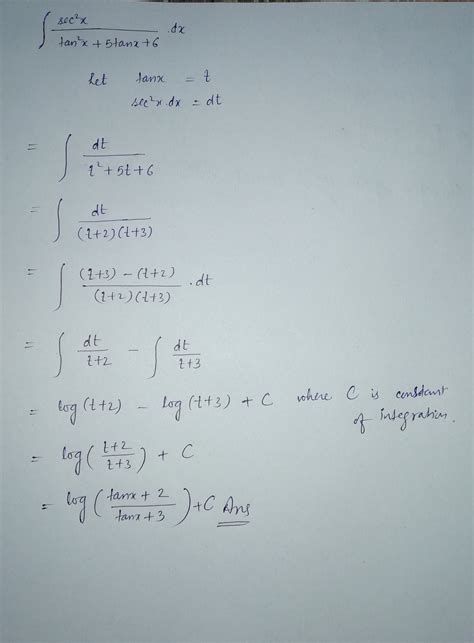 ∫ sec²x / tan²x + 5tanx + 6 . dx
Let tanx = t
sec²x.dx = dt
= ∫ dt / t² + 5t + 6
= ∫ dt / (t+2)(t+3)
= ∫ (t+3) - (t+2) / (t+2)(t+3) . dt
= ∫ dt / t+2 - ∫ dt / t+3
= log(t+2) - log(t+3) + C where C is constant of integration.
= log( t+2 / t+3 ) + C
= log( tanx + 2 / tanx + 3 ) + C Ans